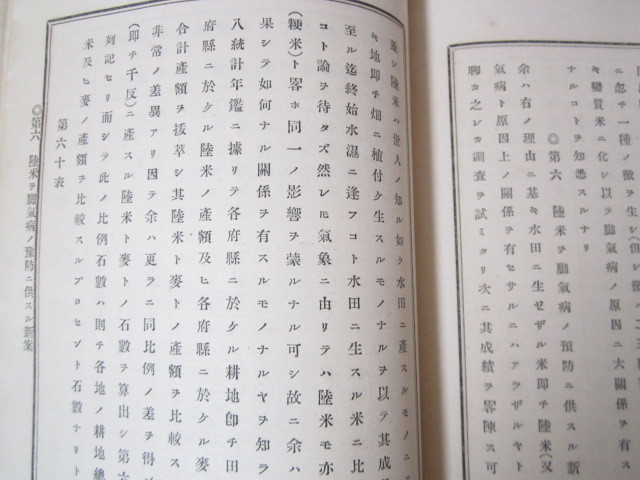 ニ忽チ一種ノ黴ヲ生シ
キ變質米ニ化シ以テ脚氣病ノ原因ニ大關係ヲ有ス
ナルコトヲ知悉スルナリ
◎第六 陸米ヲ脚氣病ノ預防ニ供スル新
余ハ有ノ理由ニ基キ水田ニ生セザル米即チ陸米(又
氣病ト原因上ノ關係ヲ有セサルニハアラザルヤト
聊カ之レカ調査ヲ試ミタリ次ニ其成績ヲ畧陳ス可
蓋シ陸米ハ世人ノ知ル如ク水田ニ產スルモノニ
キ地即チ畑ニ植付ケ生スルモノナルヲ以テ其成
至ル迄終始水濕ニ逢フコト水田ニ生スル米ニ比
コト論ヲ待タズ然レ𪜈氣象ニ由リテハ陸米モ亦
(粳米)ト畧ホ同一ノ影響ヲ蒙ルナル可シ故ニ余ハ
果シテ如何ナル關係ヲ有スルモノナルヤヲ知ラ
八統計年鑑ニ據リテ各府縣ニ於ケル耕地即チ田
府縣ニ於ケル陸米ノ產額及ヒ各府縣ニ於ケル麥
合計產額ヲ拔萃シ其陸米ト麥トノ產額ヲ比較ス
非常ノ差異アリ因テ余ハ更ラニ同比例ノ差ヲ得
(即チ千反)ニ產スル陸米ト麥トノ石數ヲ算出シ第六
列記セリ而シテ此ノ比例石數ハ則チ各地ノ耕地總
米及ヒ麥ノ產額ヲ比較スルプロセント石數ナリト
第六十表
◎第六 陸米ヲ脚氣病ノ預防ニ供スル新案